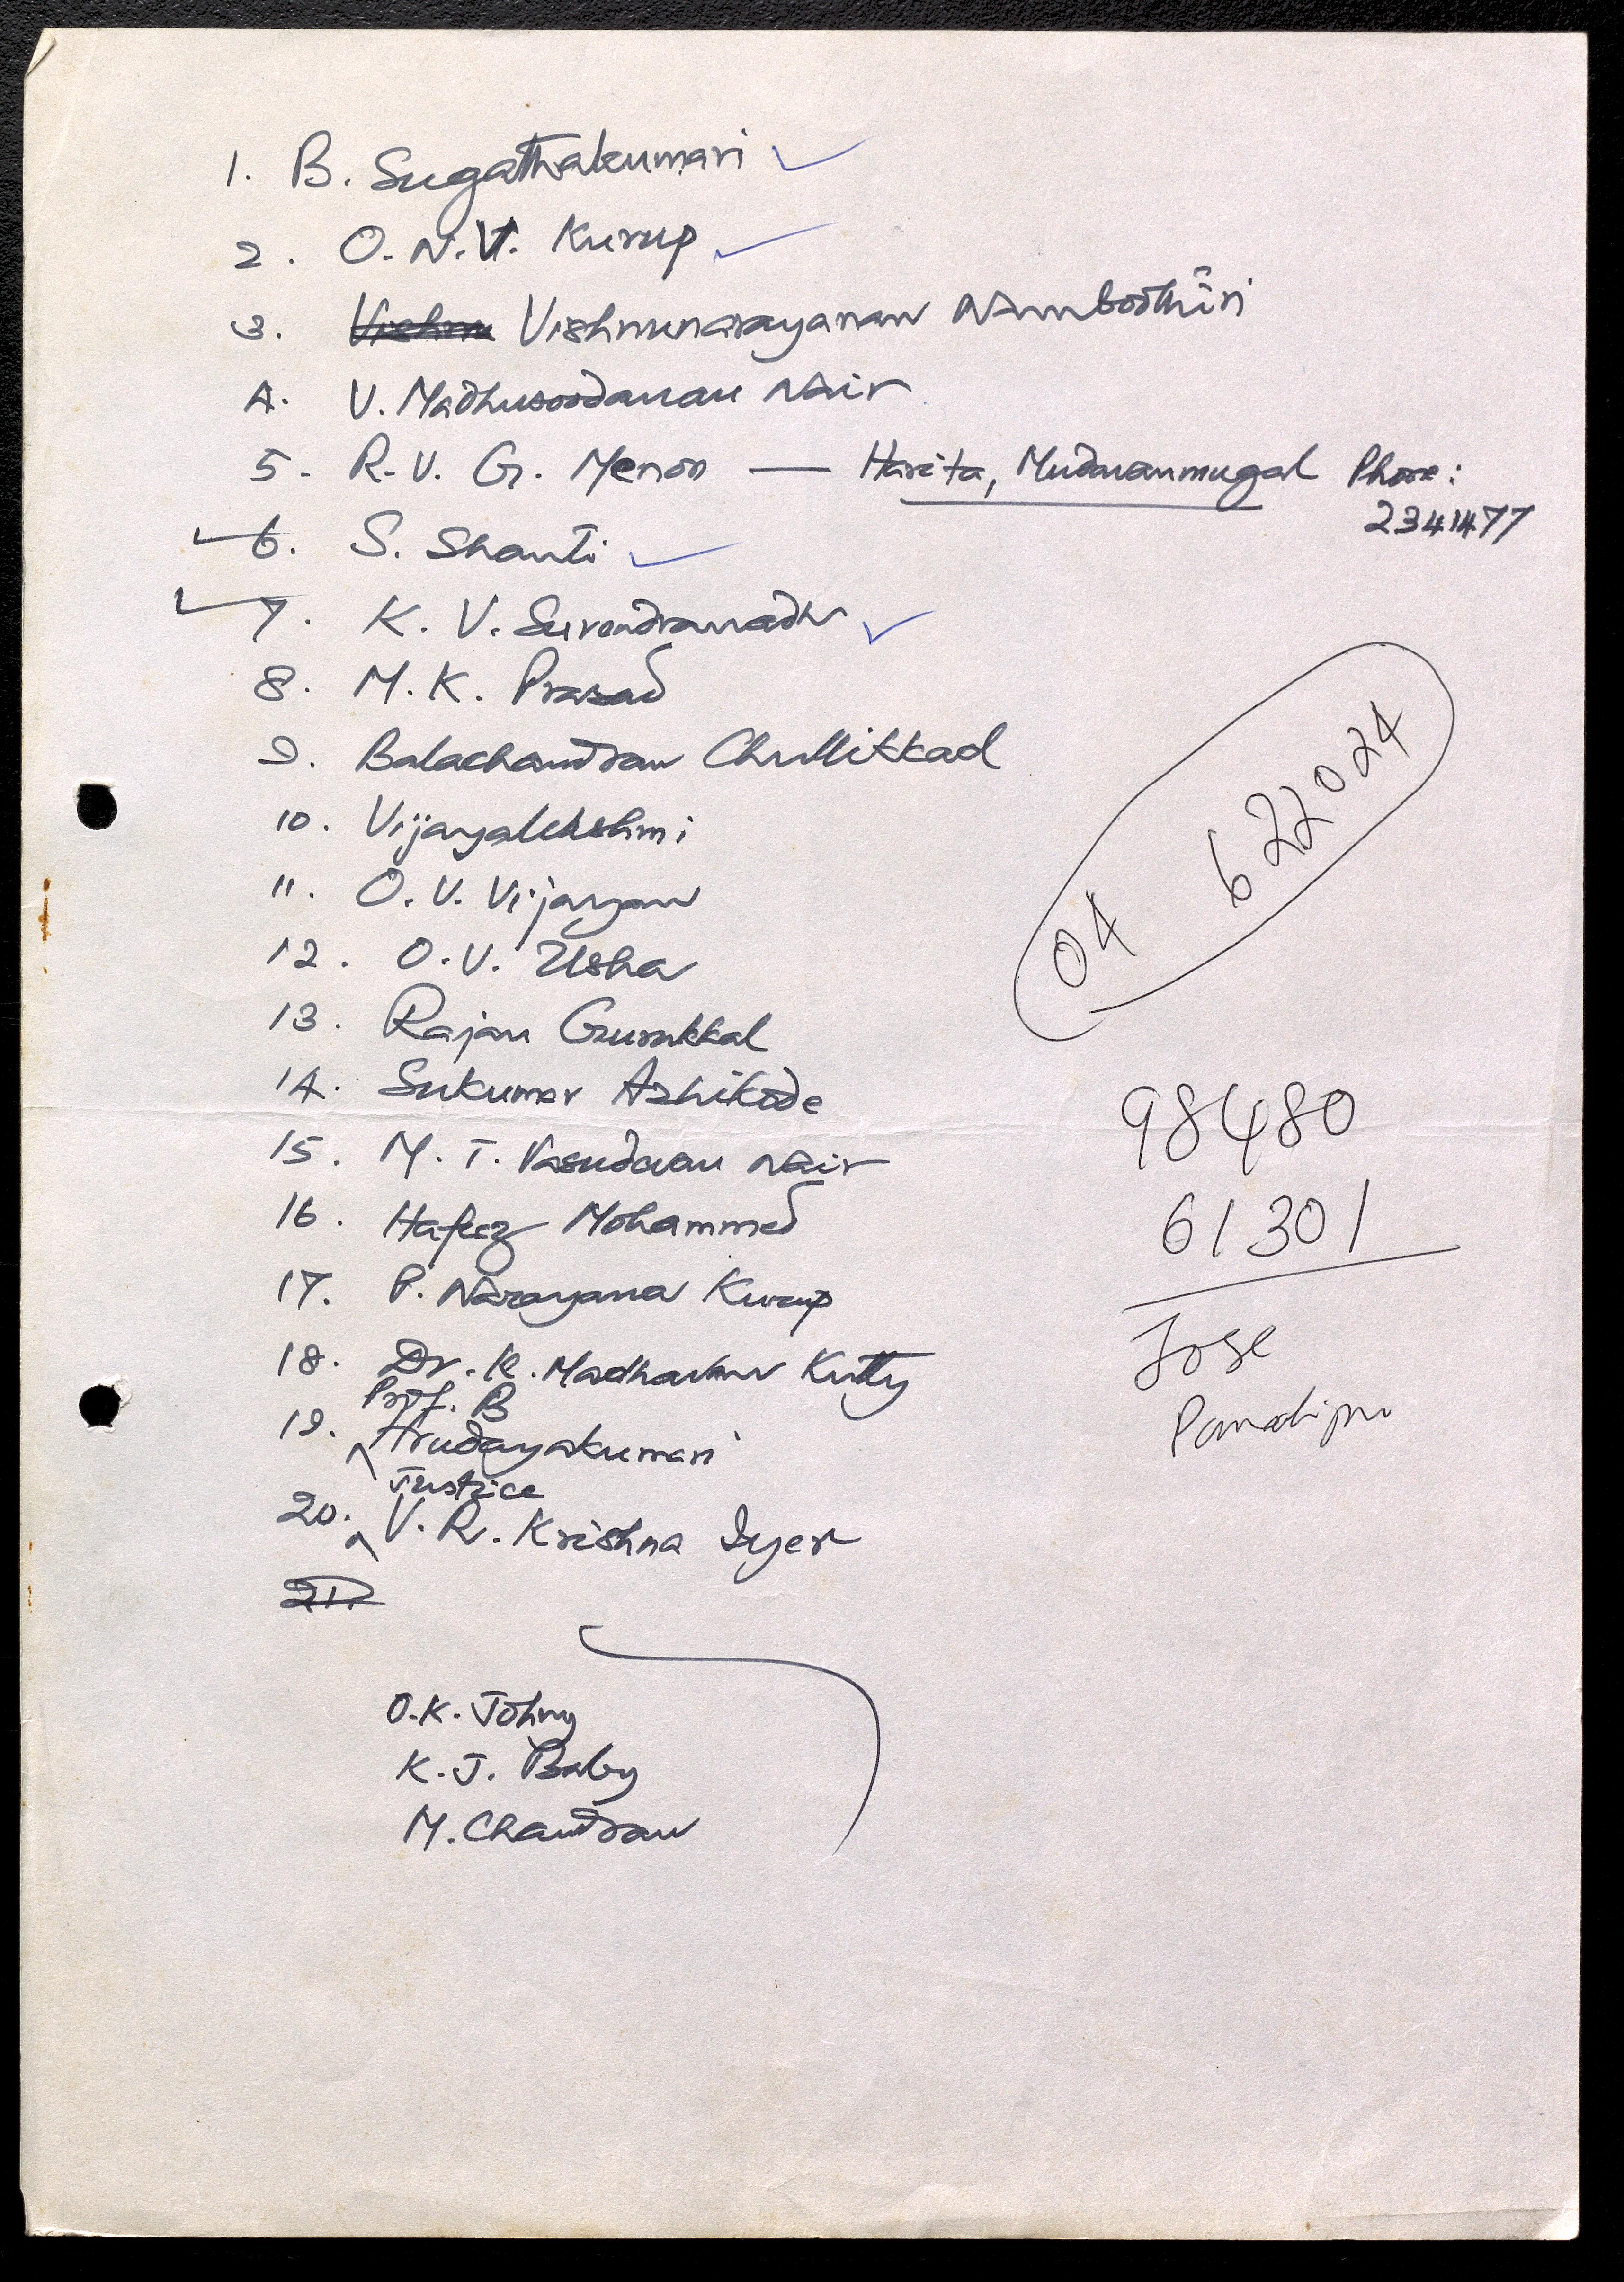 1. B. Sugathakumari
2. O. N. V. Kurup
3. Vishnu Vishnunarayanan Namboothiri
4. V. Madhusoodanan Nair
5. R. V. G. Menon — Harita, Mudavanmugal Phone:
2341477
6. S. Shanti
7. K. V. Surendranadh
8. M. K. Prasad
9. Balachandran Chullikkad
10. Vijayalekshmi
11. O. V. Vijayan
12. O. V. Usha
13. Rajan Gurukkal
14. Sukumar Azhikode
15. M. T. Vasudevan Nair
16. Hafeez Mohammed
17. P. Narayana Kurup
18. Dr. K. Madhavan Kutty
19. Prof. B Hrudayakumari
20. Justice V. R. Krishna Iyer
21.
O. K. Johny
K. J. Baby
M. Chandran
04 622024
98480
61301
Jose